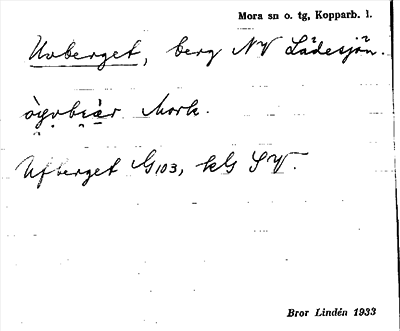 Mora sn o. tg, Kopparb. l.
Uvberget, berg NV Lådesjön.
Mork.
Ufberget G103, kls SV.
Bror Lindén 1933